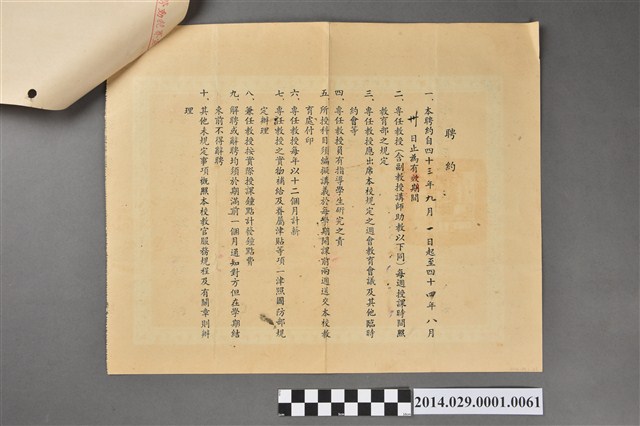 聘約
一、本聘約自四十三年九月一日起至四十四年八月
卅日止為有效期間
二、專任教授(含副教授講師助教以下同)每週授課時間照
教育部之規定
三、專任教授應出席本校規定之週會教育會議及其他臨時
約會等
四、專任教授負有指導學生研究之責
五、所授科目須編擬講義於每學期開課前兩週送交本校教
育處付印
六、專任教授每年以十二個月計薪
七、專任教授之實物補給及眷屬津貼等項一律照國防部規
定辦理
八、兼任教授按實際授課鐘點計發鐘點費
九、解聘或辭聘均須於期滿前一個月通知對方但在學期結
束前不得辭聘
十、其他未規定事項概照本校教官服務規程及有關章則辦
理
2014.029.0001.0061